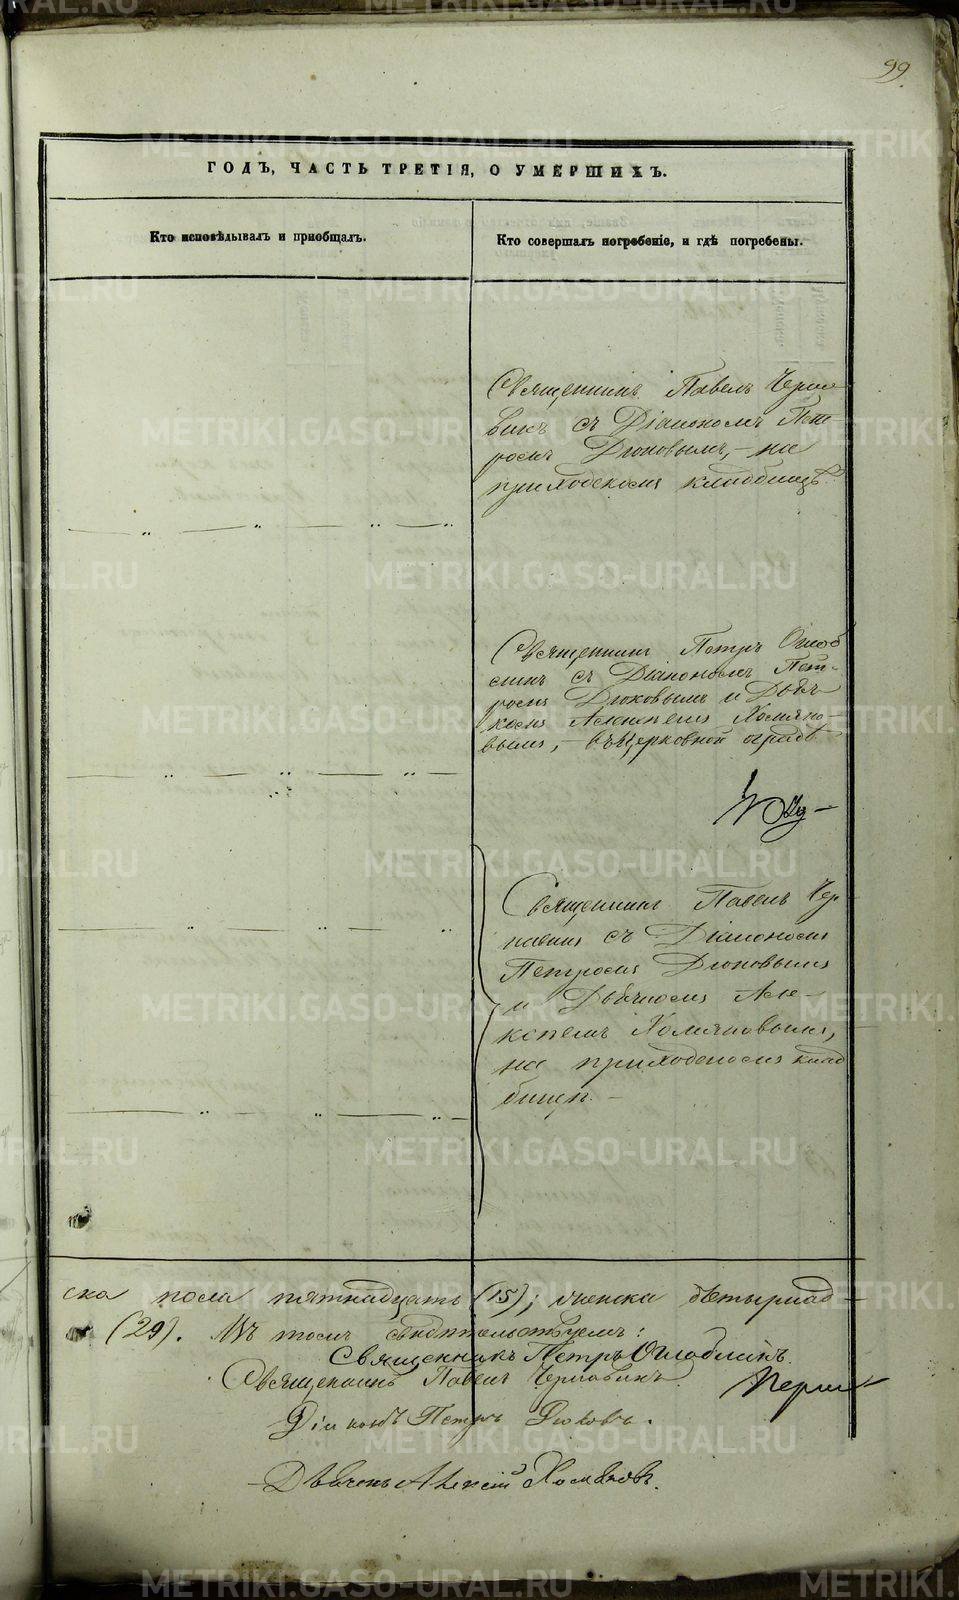 99
ГОДЪ, ЧАСТЬ ТРЕТІЯ, О УМЕРШИХЪ.
Кто исповѣдывалъ и приобщалъ.
Кто совершалъ погребеніе, и гдѣ погребены.
Священникъ Павелъ Черня
викъ съ Діакономъ Пет-
ромъ Дюковымъ, - на
приходскомъ кладбищѣ.
Священникъ Петръ Оглоб
линъ съ Діакономъ Пет-
ромъ Дюковымъ и Дьяч
комъ Алексѣемъ Хомяко-
вымъ, - въ церковной оградѣ.
Священникъ Павелъ Чер
съ Діакономъ
Петромъ Дюковымъ
и Дьячкомъ Але-
ксѣемъ Хомяковымъ,
на приходскомъ клад
бищѣ. -
ска пола пятнадцать (15); женска четырнад-
(29). Въ томъ свидѣтельствуемъ:
Священникъ Петръ Оглоблинъ.
Священникъ Павелъ
Діаконъ Петръ Дюковъ.
Дьячекъ Алексій Хомяковъ.
METRIKI.GASO-URAL.RU